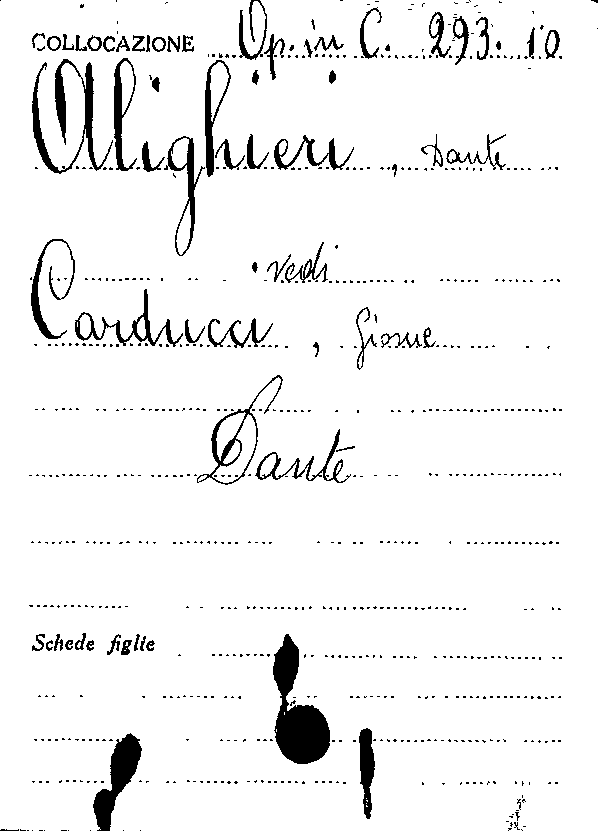 COLLOCAZIONE Op. in C. 293. 10
Alighieri, Dante
vedi
Carducci, Giosue
Dante
Schede figlie